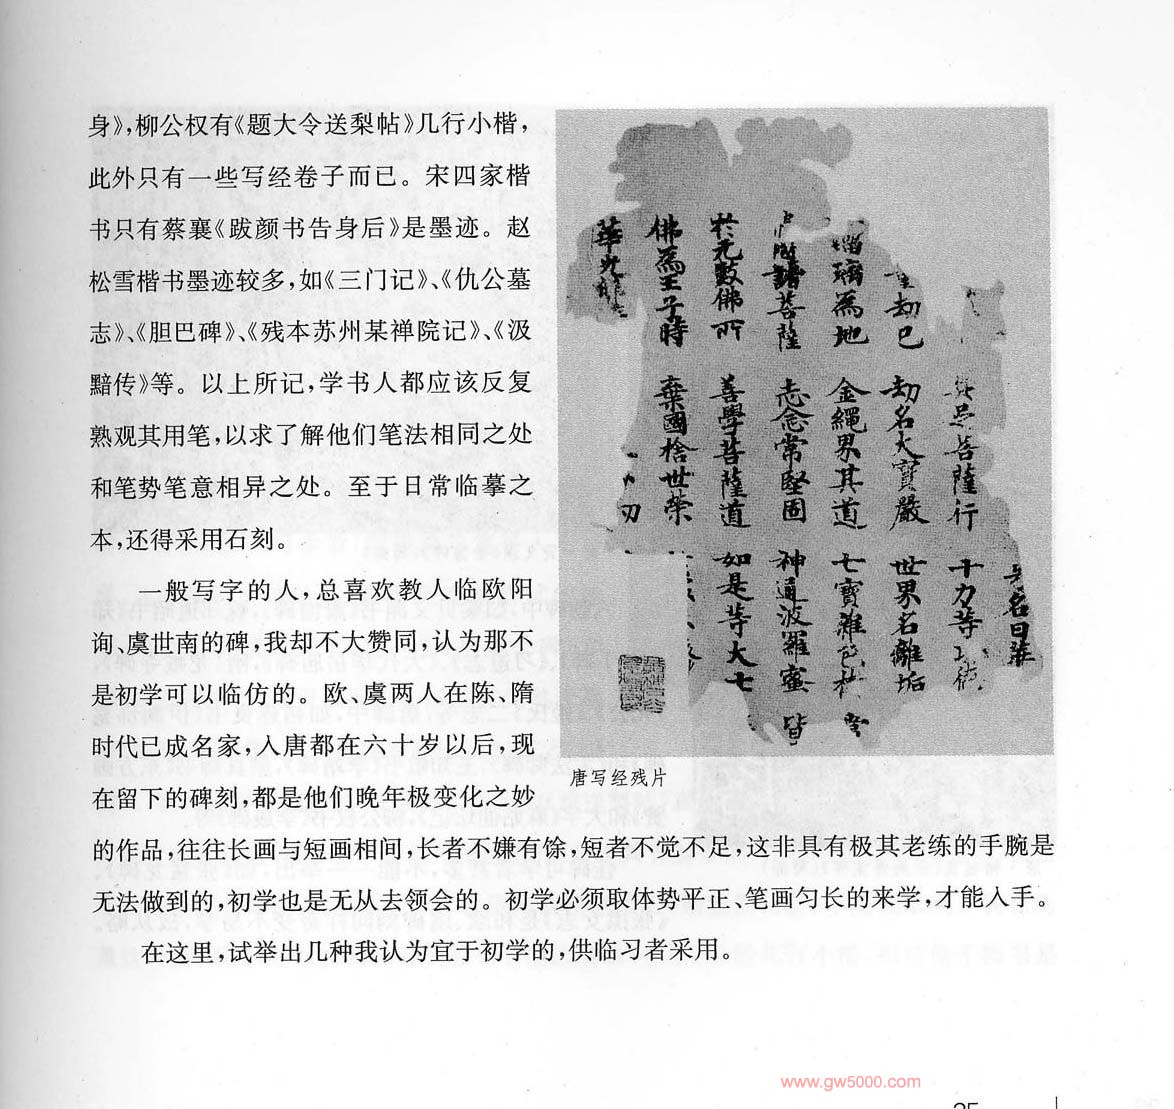 身》，柳公权有《题大令送梨帖》几行小楷，
此外只有一些写经卷子而已。宋四家楷
书只有蔡襄《跋颜书告身后》是墨迹。赵
松雪楷书墨迹较多，如《三门记》、《仇公墓
志》、《胆巴碑》、《残本苏州某禅院记》、《汲
黯传》等。以上所记，学书人都应该反复
熟观其用笔，以求了解他们笔法相同之处
和笔势笔意相异之处。至于日常临摹之
本，还得采用石刻。
一般写字的人，总喜欢教人临欧阳
询、虞世南的碑，我却不大赞同，认为那不
是初学可以临仿的。欧、虞两人在陈、隋
时代已成名家，入唐都在六十岁以后，现
在留下的碑刻，都是他们晚年极变化之妙
的作品，往往长画与短画相间，长者不嫌有馀，短者不觉不足，这非具有极其老练的手腕是
无法做到的，初学也是无从去领会的。初学必须取体势平正、笔画匀长的来学，才能入手。
在这里，试举出几种我认为宜于初学的，供临习者采用。
名曰華
菩薩行 十力等
劫已 劫名大寶嚴 世界名離垢
璃為地 金繩界其道 七寶雜色
諸菩薩 志念常堅固 神通波羅蜜 皆
於无數佛所 善學菩薩道 如是等大士
佛為王子時 棄國捨世榮
華光
唐写经残片
www.gw5000.com